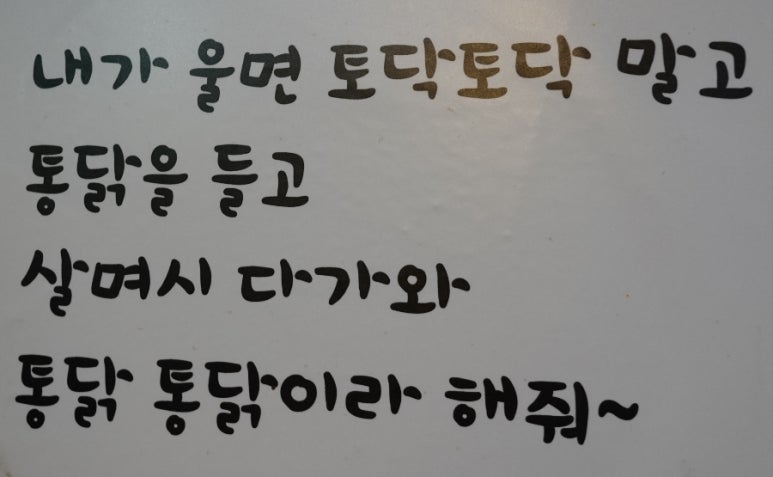 내가 울면 토닥토닥 말고
통닭을 들고
살며시 다가와
통닭 통닭이라 해줘~